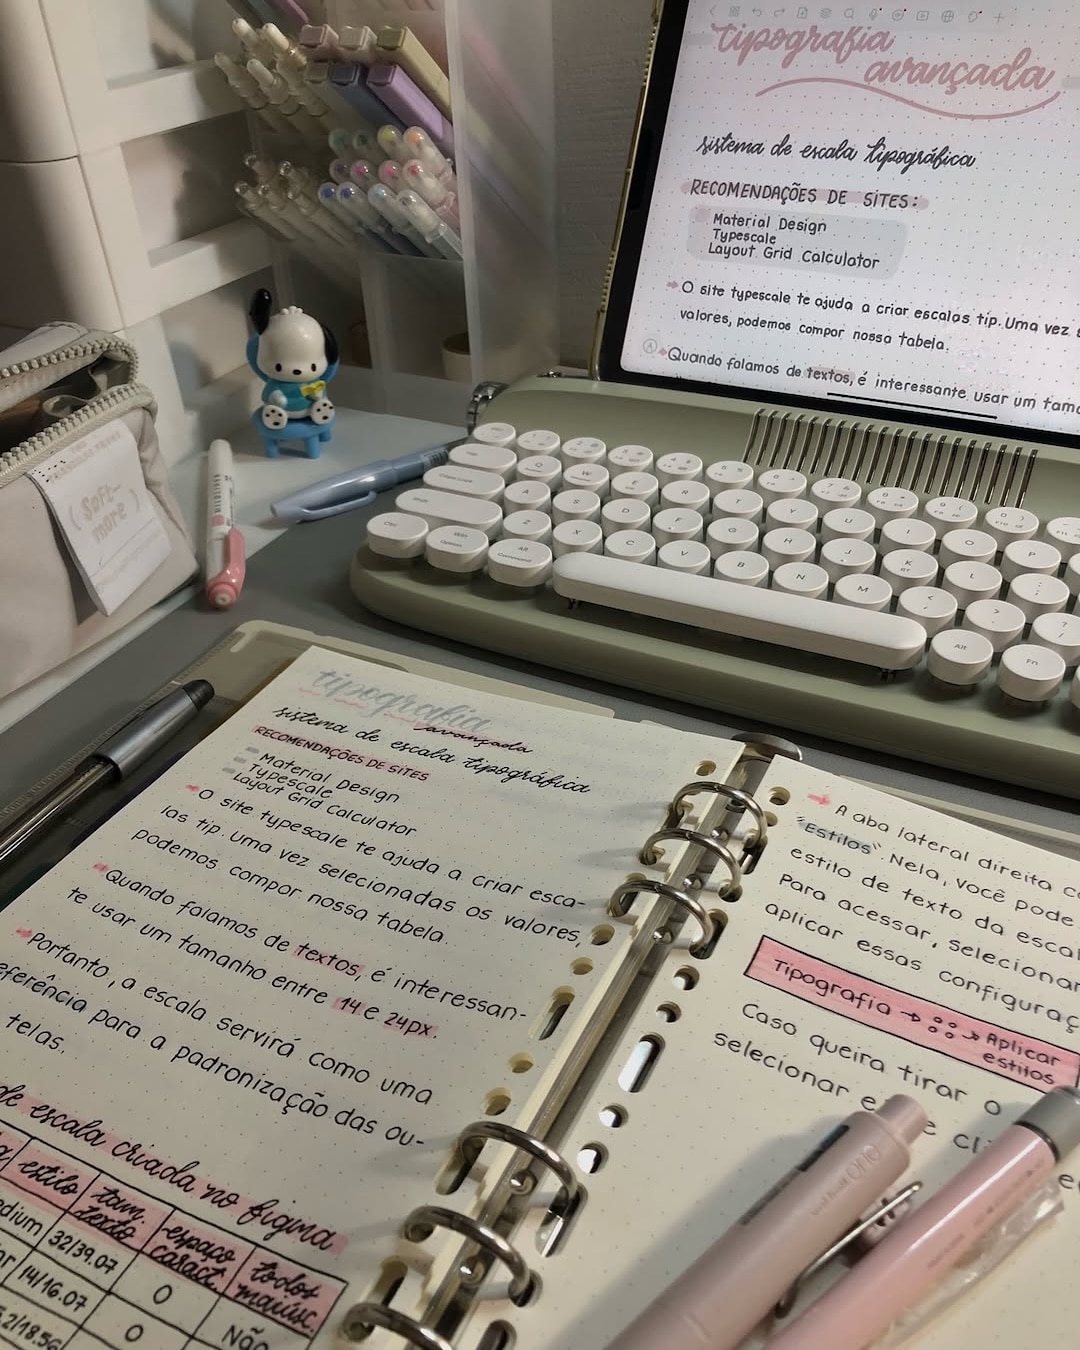 tipografia
avançada
sistema de escala tipográfica
RECOMENDAÇÕES DE SITES:
Material Design
Typescale
Layout Grid Calculator
O site typescale te ajuda a criar escalas tip. Uma vez
valores, podemos compor nossa tabela.
A
Quando falamos de textos, é interessante usar um
(Soft-
more)
Q
W
E
R
T
Y
U
I
O
P
A
S
D
F
G
H
J
K
L
Z
X
C
V
B
N
M
Alt
Fn
tipografia
avançada
sistema de escala tipográfica
RECOMENDAÇÕES DE SITES
Material Design
Typescale
Layout Grid Calculator
O site typescale te ajuda a criar esca-
las tip. uma vez selecionadas os valores,
podemos compor nossa tabela.
Quando falamos de textos, é interessan-
te usar um tamanho entre 14 e 24px.
Portanto, a escala servirá como uma
eferência para a padronização das ou-
telas.
de escala criada no figma
estilo tam. texto espaço caract. todos maiúsc.
edium 32/39.07 0 Não
ar 14/16.07 0
5.2/18.56
A aba lateral direita
"Estilos". Nela, você pode
estilo de texto da escal
Para acessar, selecionar
aplicar essas configuraç
Tipografia → → Aplicar
estilos
Caso queira tirar o
selecionar e
uni-ball one